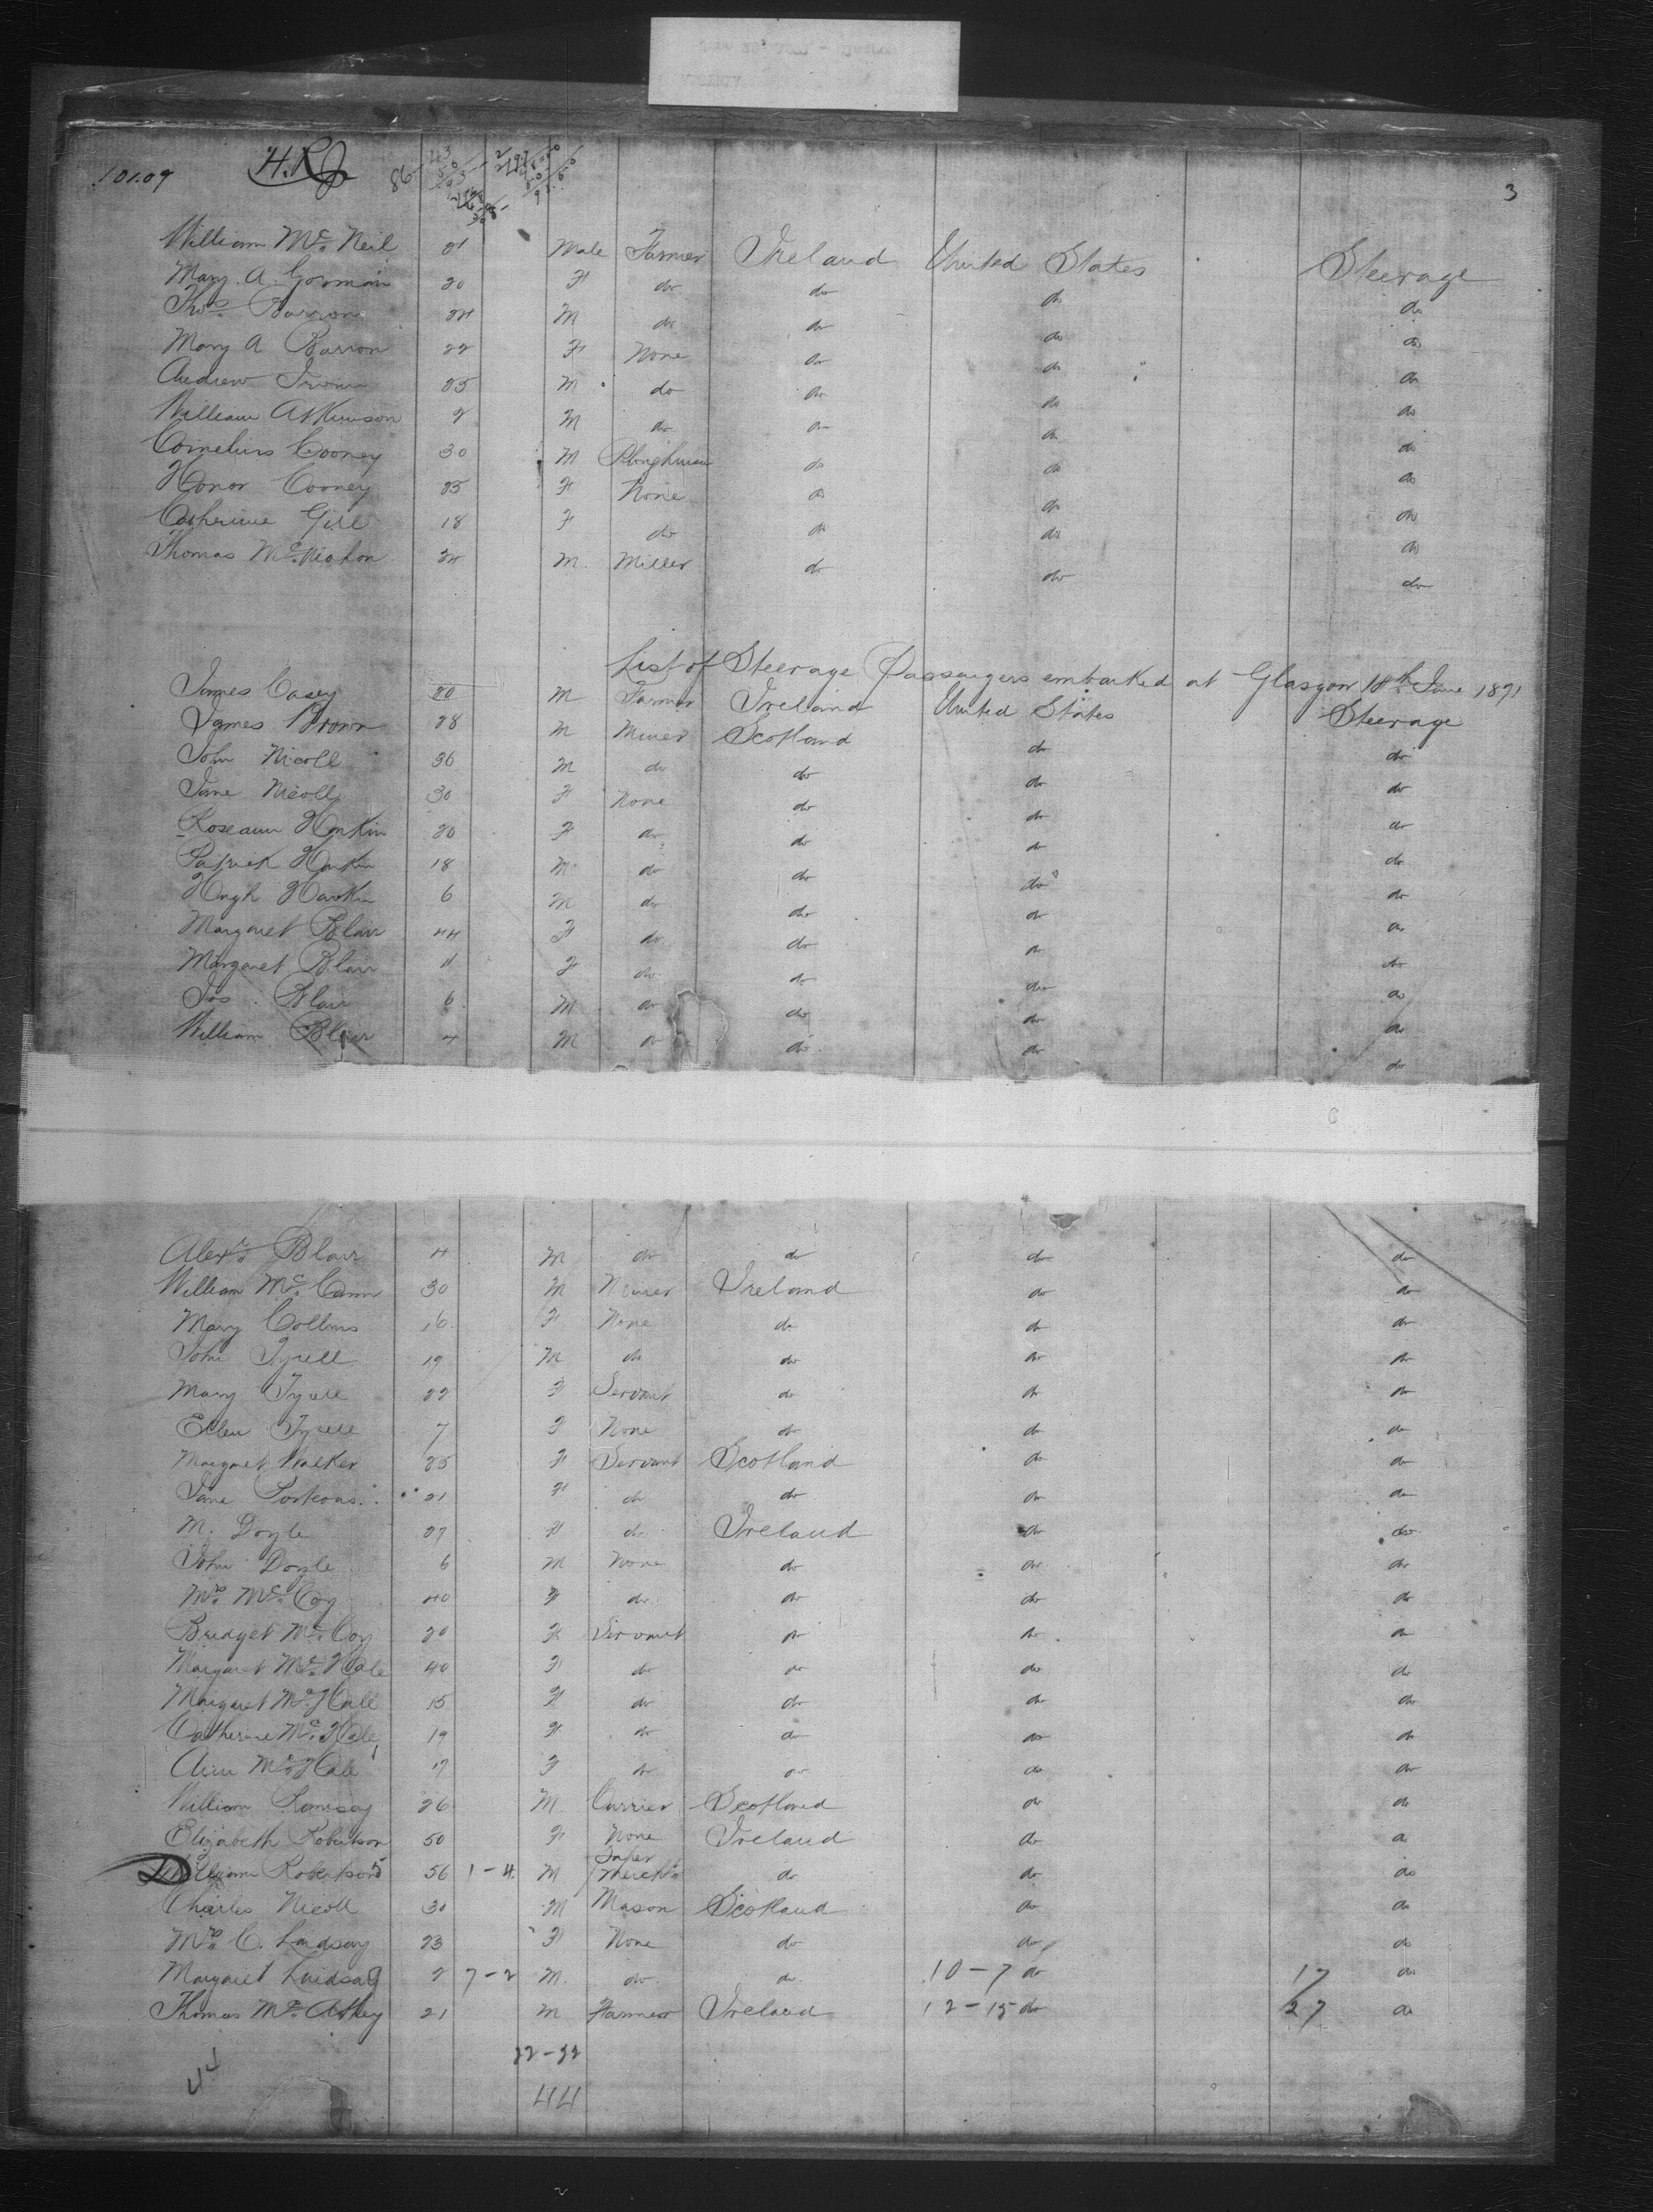 101.09 H.R. 86 3
William Mc. Neil 21 Male Farmer Ireland United States Steerage
Mary A. Gorman 20 F do do do do
Thos. Barron 24 M do do do do
Mary A Barron 22 F None do do do
Andrew 25 M do do do do
William Atkinson 2 M do do do do
Cornelius Cooney 30 M Ploughman do do do
Honor Cooney 25 F None do do do
Catherine Gill 18 F do do do do
Thomas Mc. Mahon 24 M. Miller do do do
List of Steerage Passengers embarked at Glasgow 18th June 1891
James Casey 20 M Farmer Ireland United States Steerage
James Brown 28 M Miner Scotland do do
John Nicoll 36 M do do do do
Jane Nicoll 30 F None do do do
Roseann Harkin 20 F do do do do
Patrick Harkin 18 M do do do do
Hugh Harkin 6 M do do do do
Margaret Blair 44 F do do do do
Margaret Blair 11 F do do do do
Jas. Blair 6 M do do do do
William Blair 4 M do do do do
Alexr. Blair 4 M do do do do
William Mc. Cann 30 M Miner Ireland do do
Mary Collins 16. F None do do do
John Tyrell 19 M do do do do
Mary Tyrell 22 F Servant do do do
Ellen Tyrell 7 F None do do do
Margaret Walker 25 F Servant Scotland do do
Jane Porteous 21 F do do do do
M. Doyle 27 F do Ireland do do
John Doyle 6 M None do do do
Mrs. Mc. Coy 40 F do do do do
Bridget Mc. Coy 20 F Servant do do do
Margaret Mc. Hale 40 F do do do do
Margaret Mc. Hale 15 F do do do do
Catherine Mc. Hale 19 F do do do do
Ann Mc. Hale 17 F do do do do
William Ramsay 26 M. Carrier Scotland do do
Elizabeth Robertson 50 F None Ireland do do
William Robertson 56 1-4 M Mercht. do do do
Charles Nicoll 30 M Mason Scotland do do
Mrs. C. Lindsay 23 F None do do do
Margaret Lindsay 2 7-2 M. do do 10-7 do 17 do
Thomas Mc. Atkey 21 M Farmer Ireland 12-15 do 27 do
22-22
44 44